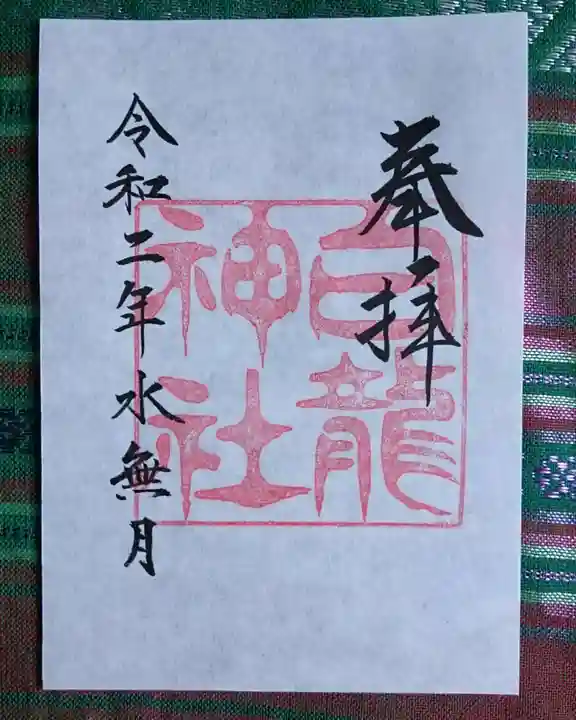 奉拝
白龍
神社
令和二年水無月